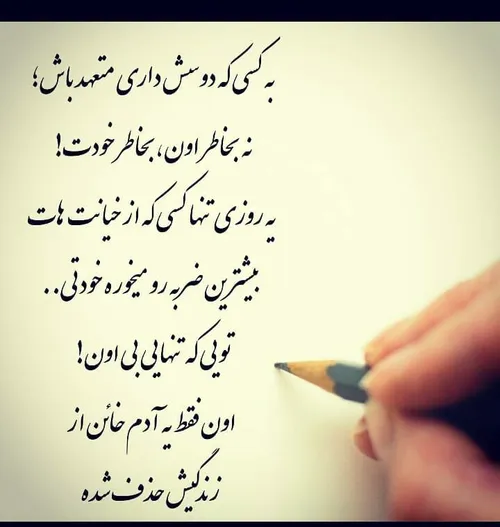 به کسی که دوسش داری متعهد باش؛
نه بخاطر اون، بخاطر خودت!
یه روزی تنها کسی که از خیانت هات
بیشترین ضربه رو میخوره خودتی..
تویی که تنهایی بی اون!
اون فقط یه آدم خائن از
زندگیش حذف شده